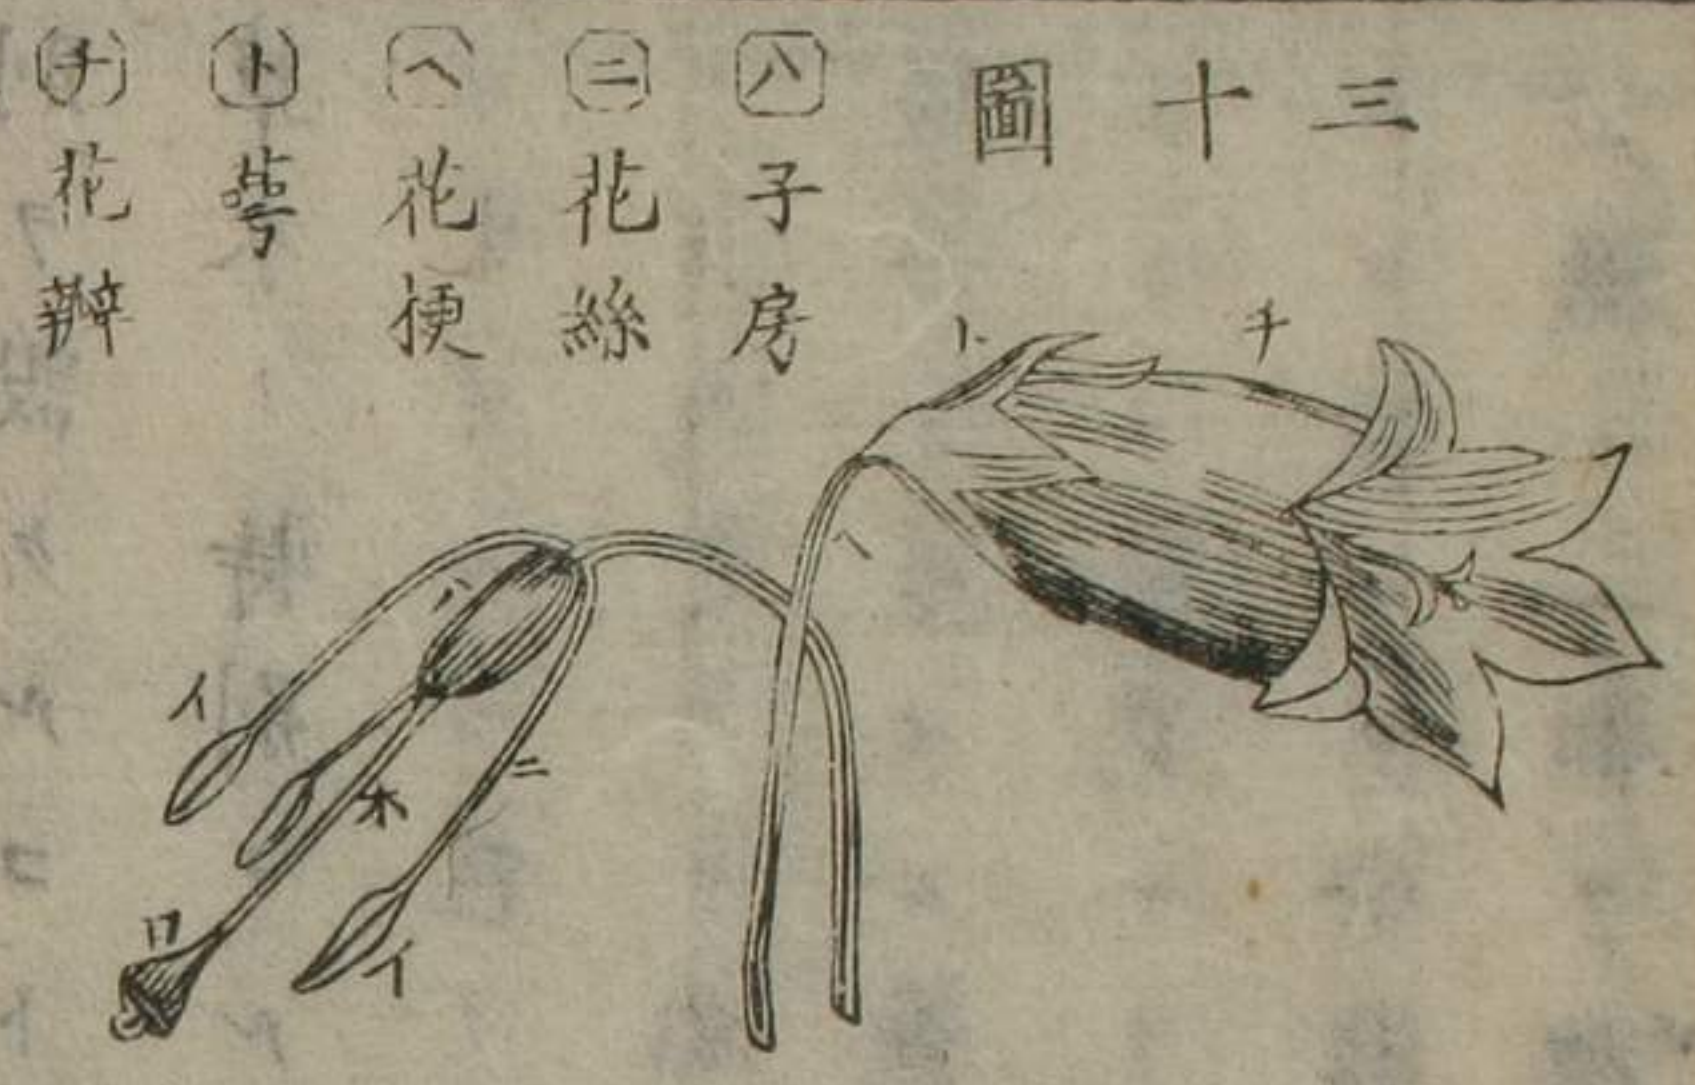 三十圖
ハ 子房
ニ 花絲
ヘ 花梗
ト 萼
チ 花瓣
ト
チ
ヘ
ハ
イ
ニ
ホ
ロ
イ